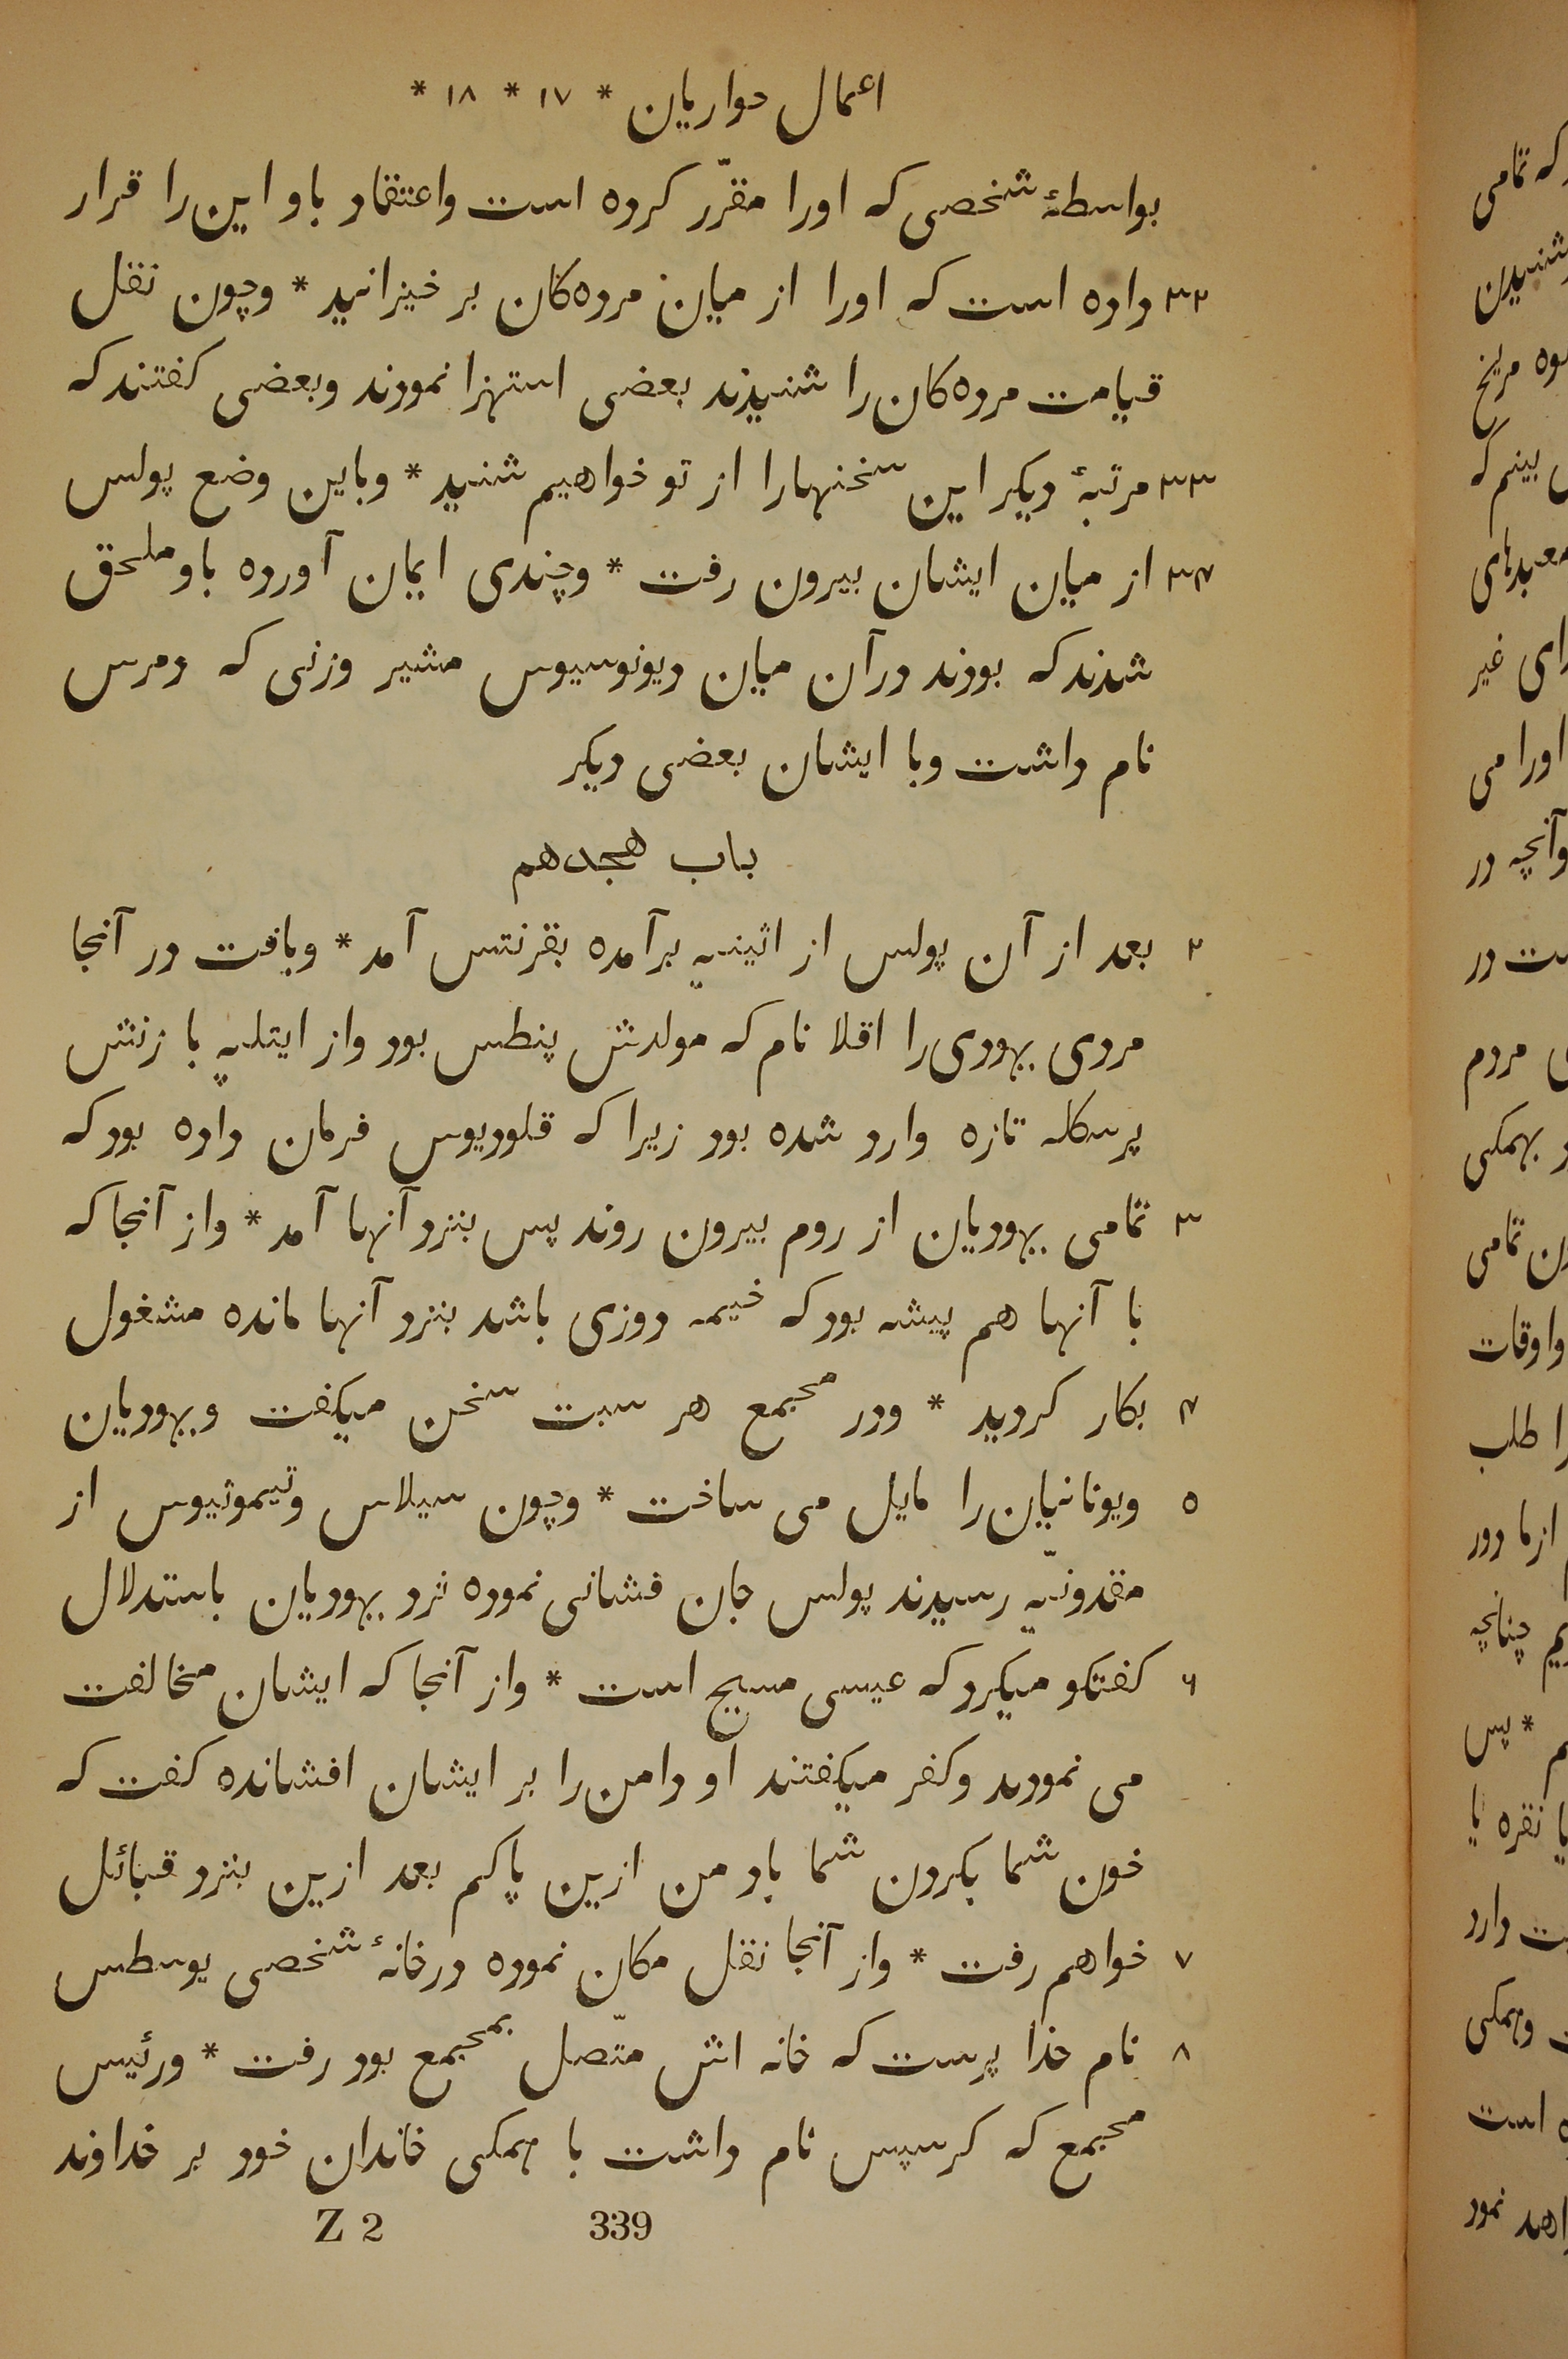 اعمال حواریان * ۱۷ * ۱۸ *
بواسطهٔ شخصی که اورا مقرّر کرده است واعتقاد باو این را قرار
۳۲ داده است که اورا از میان مرده‌کان بر خیزانید * وچون نقل
قیامت مرده‌کان را شنیدند بعضی استهزا نمودند وبعضی کفتند که
۳۳ مرتبهٔ دیکر این سخنهارا از تو خواهیم شنید * وباین وضع پولس
۳۴ از میان ایشان بیرون رفت * وچندی ایمان آورده باو ملحق
شدند که بودند درآن میان دیونوسیوس مشیر وزنی که دمرس
نام داشت وبا ایشان بعضی دیکر
باب هجدهم
۲ بعد از آن پولس از اثینیه برآمده بقرنتس آمد * ویافت در آنجا
مردی یهودی را اقلا نام که مولدش پنطس بود واز ایتلیه با زنش
پرسکله تازه وارد شده بود زیرا که قلودیوس فرمان داده بود که
۳ تمامی یهودیان از روم بیرون روند پس بنزد آنها آمد * واز آنجا که
با آنها هم پیشه بود که خیمه دوزی باشد بنزد آنها مانده مشغول
۴ بکار کردید * ودر مجمع هر سبت سخن میکفت ویهودیان
۵ ویونانیان را مایل می ساخت * وچون سیلاس وتیموثیوس از
مقدونیّه رسیدند پولس جان فشانی نموده نزد یهودیان باستدلال
۶ کفتکو میکرد که عیسی مسیح است * واز آنجا که ایشان مخالفت
می نمودند وکفر میکفتند او دامن را بر ایشان افشانده کفت که
خون شما بکردن شما باد من ازین پاکم بعد ازین بنزد قبائل
۷ خواهم رفت * واز آنجا نقل مکان نموده درخانهٔ شخصی یوسطس
۸ نام خدا پرست که خانه اش متّصل بمجمع بود رفت * ورئیس
مجمع که کرسپس نام داشت با همکی خاندان خود بر خداوند
339 Z 2